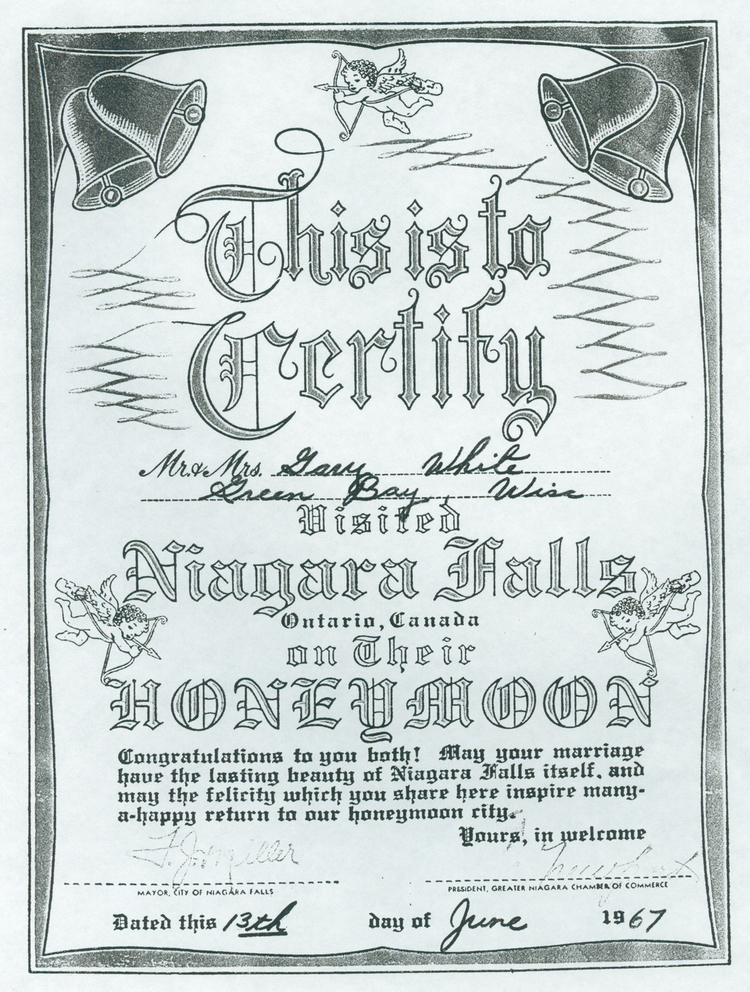 This is to
Certify
Mr. & Mrs. Gary White
Green Bay, Wisc
Visited
Niagara Falls
Ontario, Canada
on Their
HONEYMOON
Congratulations to you both! May your marriage
have the lasting beauty of Niagara Falls itself, and
may the felicity which you share here inspire many-
a-happy return to our honeymoon city.
Yours, in welcome
Miller
MAYOR, CITY OF NIAGARA FALLS
PRESIDENT, GREATER NIAGARA CHAMBER OF COMMERCE
Dated this 13th day of June 1967